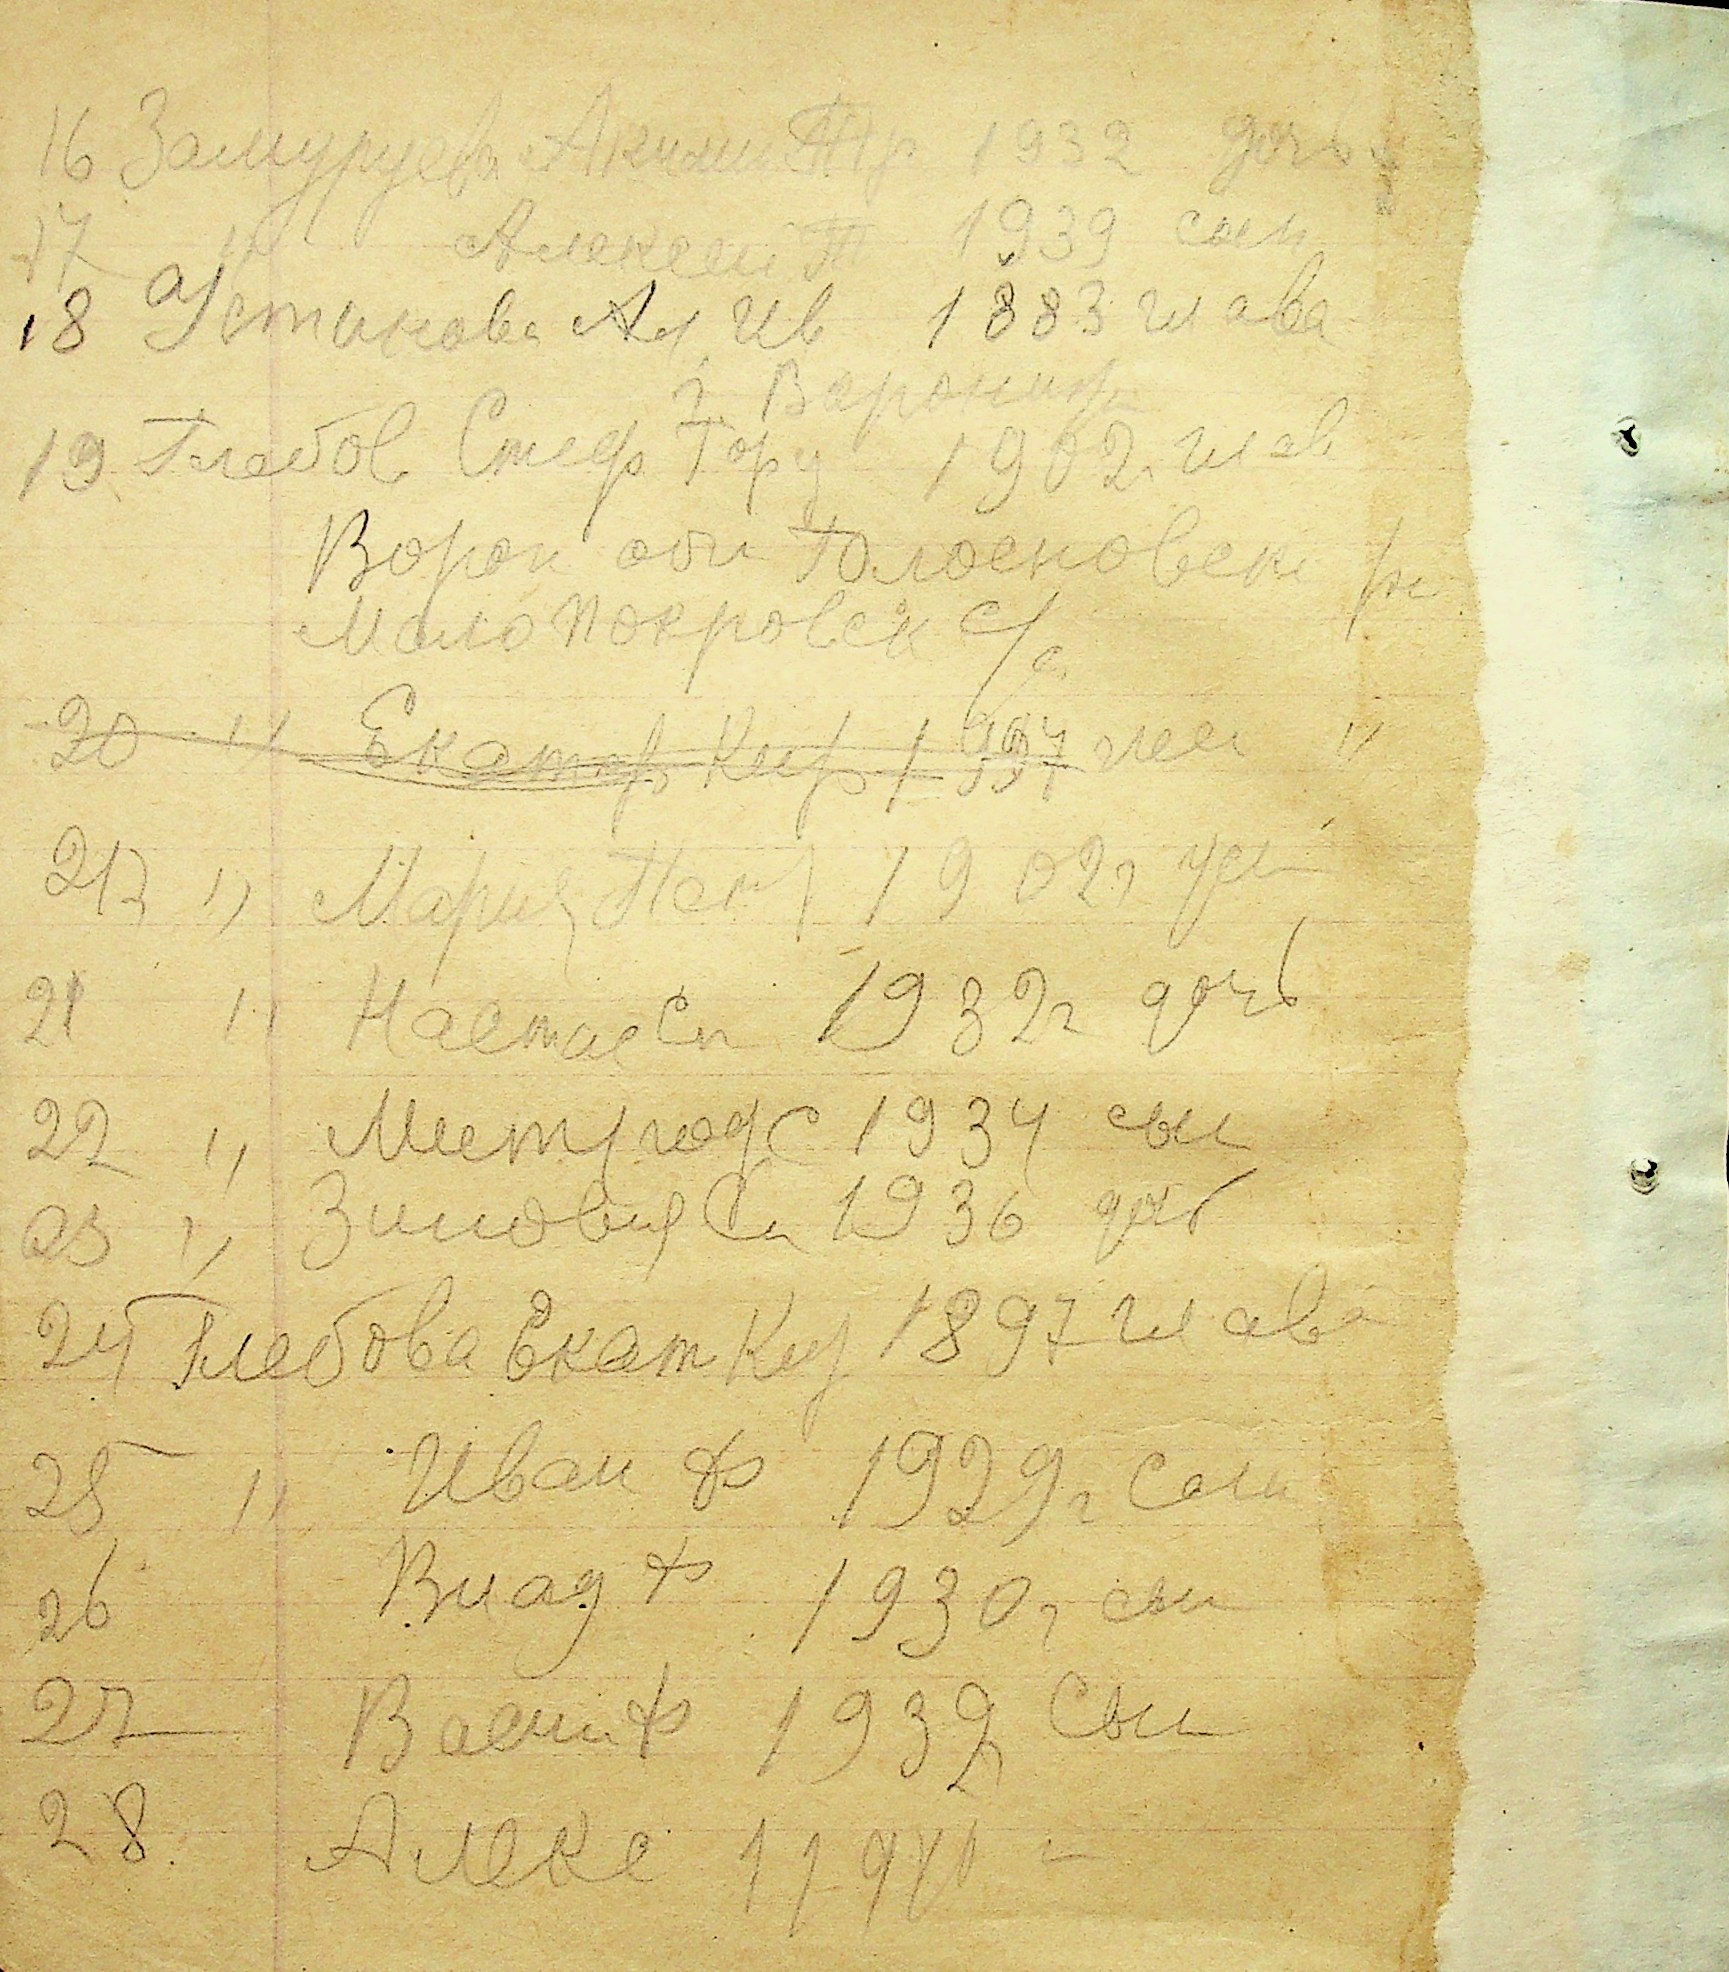 16 Замуруева Акулин Тр 1932 дочь
17 " Алексей Т 1939 сын
18 Устинова Ал Ив 1883 глава
г. Воронеж
19 Глебов Стеф Гор 1902 г глав
Ворон обл Голосновск р/н
Мало покровск с/с
20 " Екатер Кир 1897 чле "
" Мария Пет 1902 г
21 " Настас Сп 1932 г дочь
22 " Митроф С 1934 сын
23 " Зиновия Сп 1936 доч
24 Глебова Екат Кир 1897 глава
25 " Иван Ф 1929 г Сын
26 Влад Ф 1930 г сын
27 Васили Ф 1932 Сын
28. Алекс